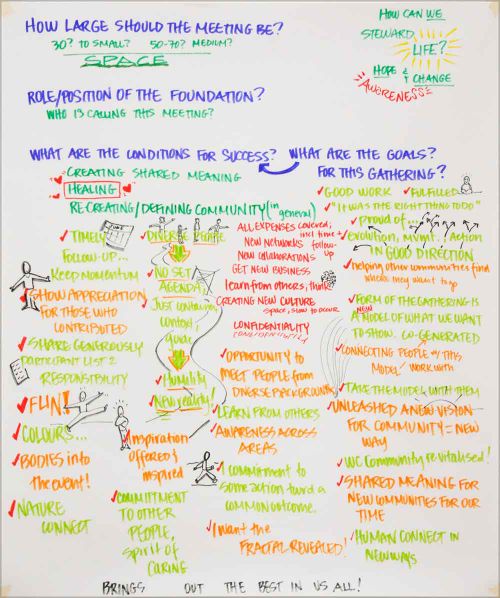 HOW LARGE SHOULD THE MEETING BE?
30? TO SMALL? 50-70? MEDIUM?
SPACE
HOW CAN WE
STEWARD
LIFE?
HOPE & CHANGE
AWARENESS
ROLE/POSITION OF THE FOUNDATION?
WHO IS CALLING THIS MEETING?
WHAT ARE THE CONDITIONS FOR SUCCESS?
CREATING SHARED MEANING
HEALING
RE-CREATING/DEFINING COMMUNITY (in general)
TIMELY
FOLLOW-UP...
Keep momentum
SHOW APPRECIATION
FOR THOSE WHO
CONTRIBUTED
SHARE GENEROUSLY
PARTICIPANT LIST 2
RESPONSIBILITY
FUN!
COLOURS...
BODIES into
the event!
NATURE
CONNECT
DIVERSE PEOPLE
NO SET
AGENDA
Just container,
context,
guide
Humility
New reality!
Inspiration
offered &
inspired
COMMITMENT
TO OTHER
PEOPLE,
spirit of
CARING
ALL EXPENSES covered,
incl time +
NEW NETWORKS follow-up
NEW COLLABORATIONS
GET NEW BUSINESS
learn from others, think
CREATING NEW CULTURE
space, slow to occur
CONFIDENTIALITY
OPPORTUNITY to
MEET PEOPLE from
DIVERSE BACKGROUNDS
LEARN FROM OTHERS
AWARENESS ACROSS
AREAS
COMMITMENT to
some action toward a
common outcome.
I want the
FRACTAL REVEALED!
WHAT ARE THE GOALS?
FOR THIS GATHERING?
GOOD WORK FULFILLED
"IT WAS THE RIGHT THING TO DO"
proud of...
evolution, mvmt, Action
IN GOOD DIRECTION
helping other communities find
where they want to go
FORM OF THE GATHERING IS
A NEW MODEL OF WHAT WE WANT
TO SHOW. CO-GENERATED
CONNECTING PEOPLE W/ THIS
MODEL / WORK WITH
TAKE THE MODEL WITH THEM
UNLEASHED A NEW VISION
FOR COMMUNITY = NEW
WAY
WC Community revitalised!
SHARED MEANING FOR
NEW COMMUNITIES FOR OUR
TIME
HUMAN CONNECT IN
NEW WAYS
BRINGS OUT THE BEST IN US ALL!